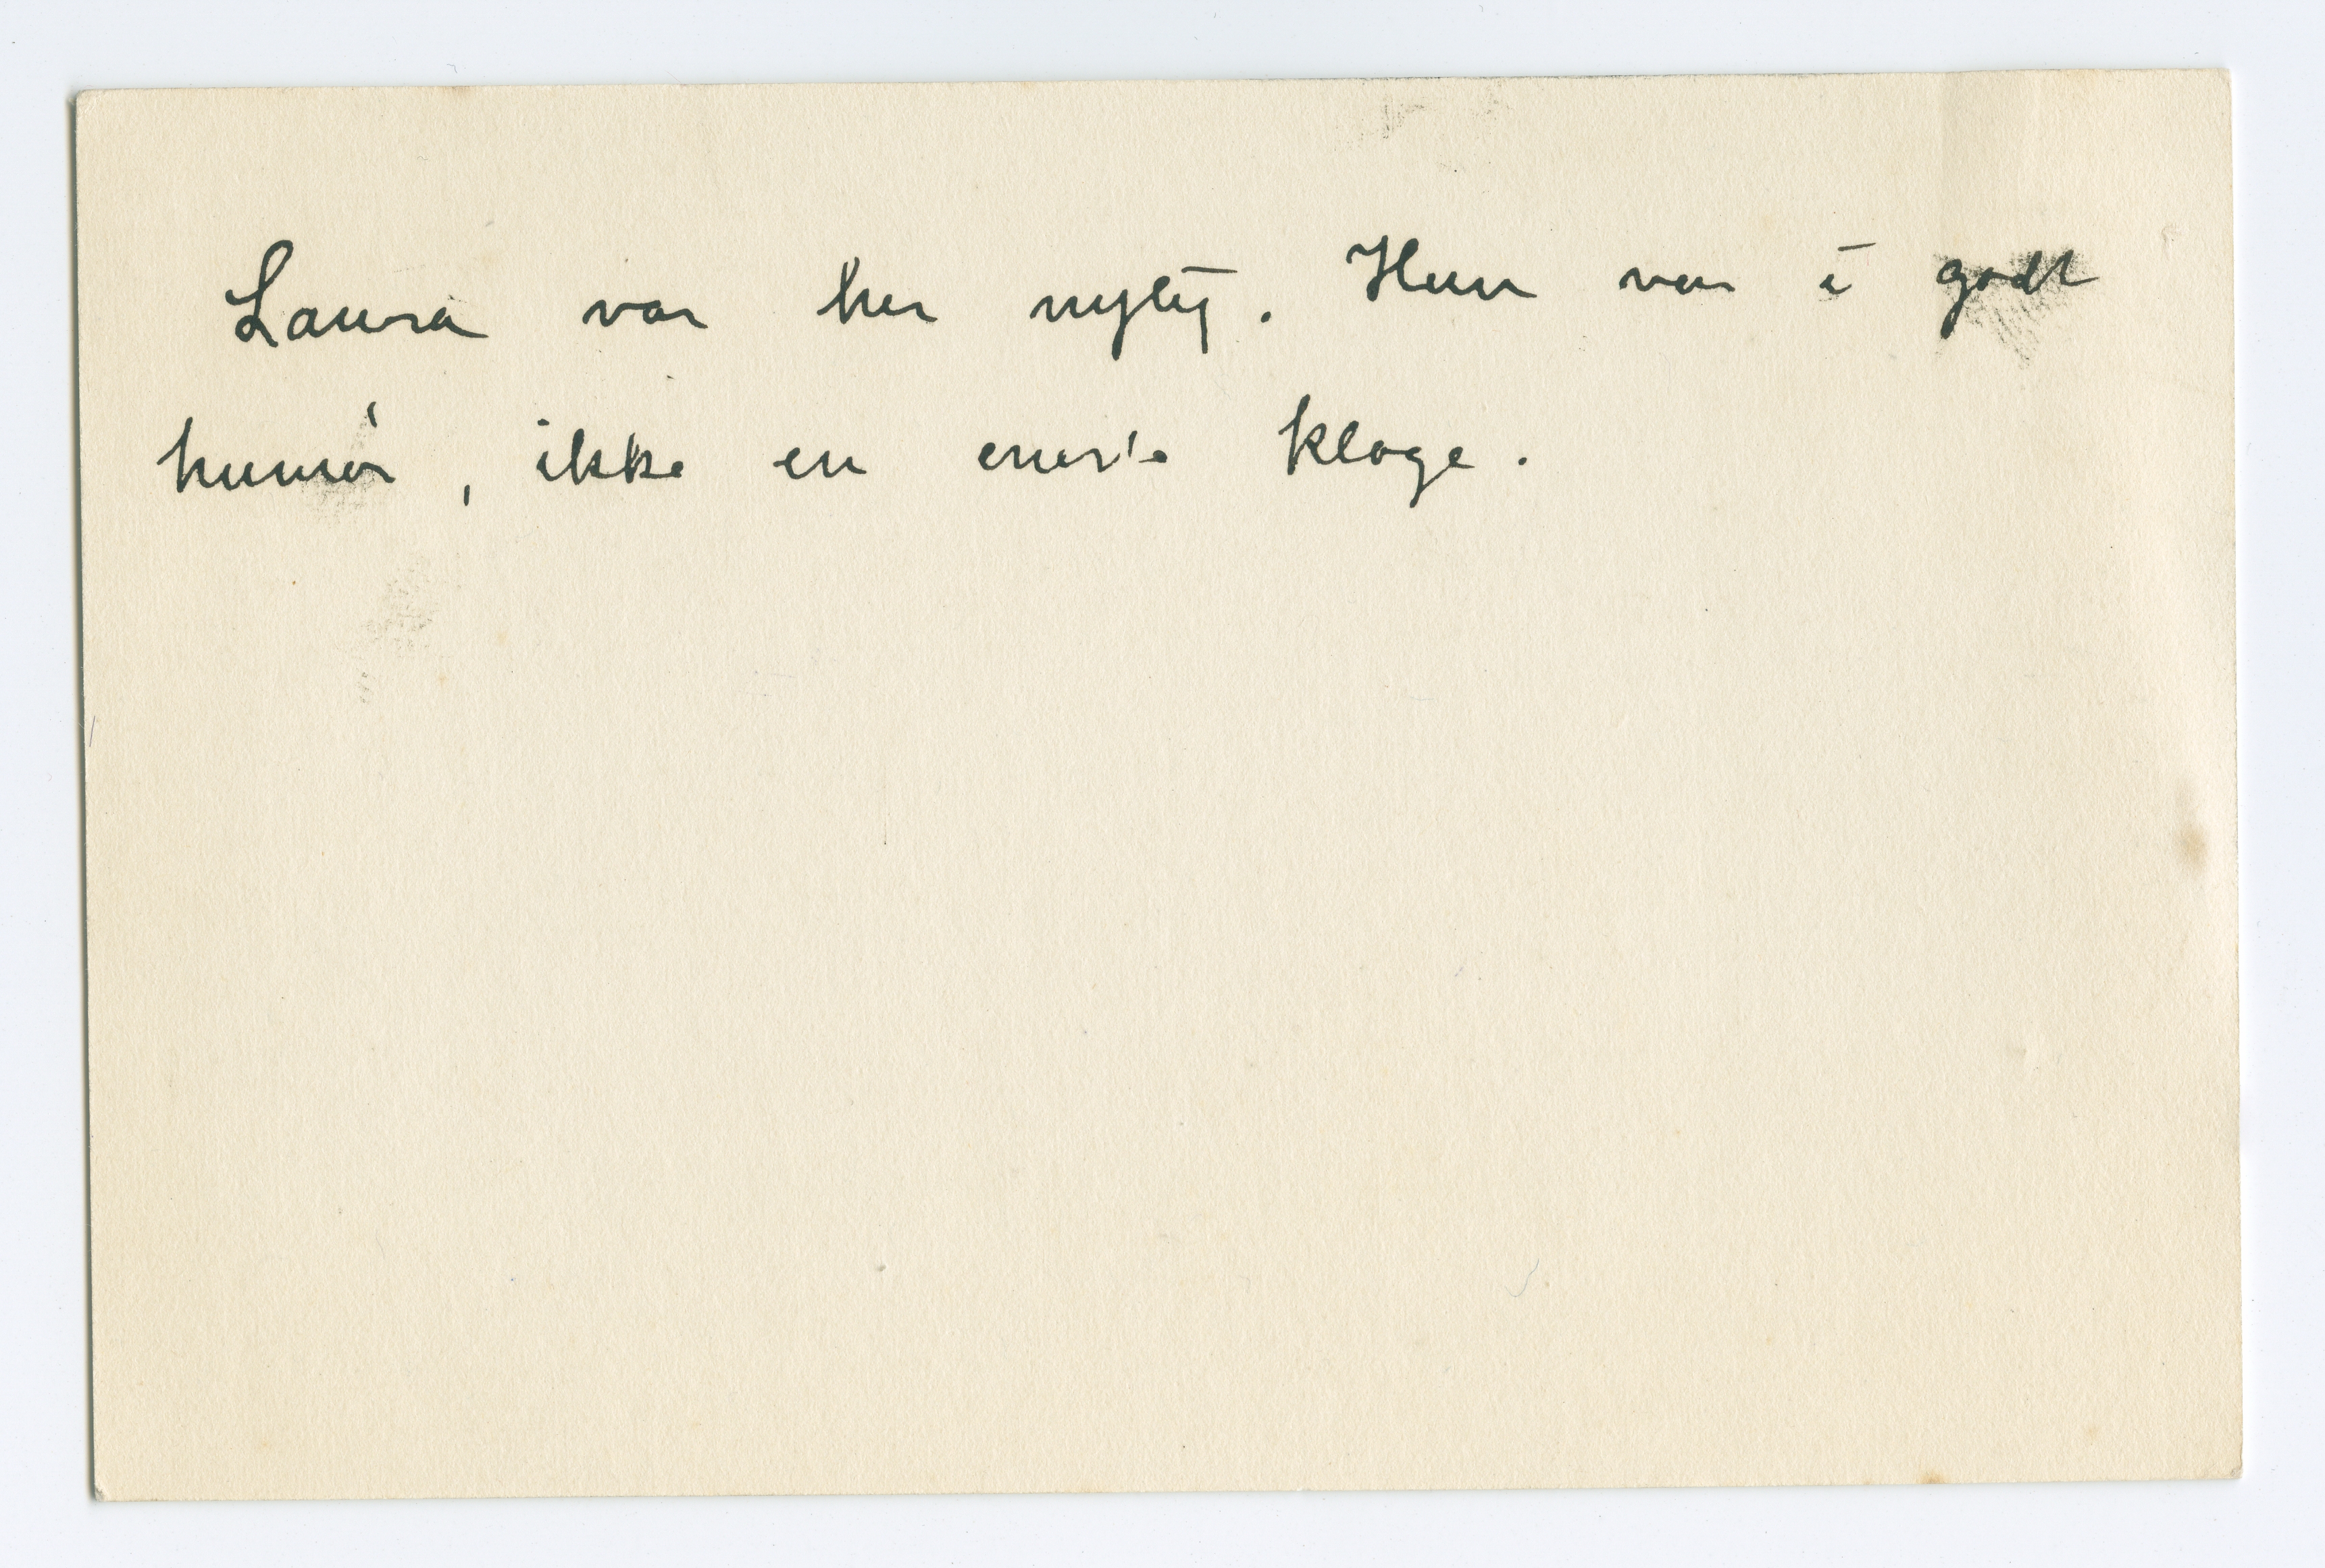 Laura var her nylig. Hun var i godt
humør, ikke en eneste klage.